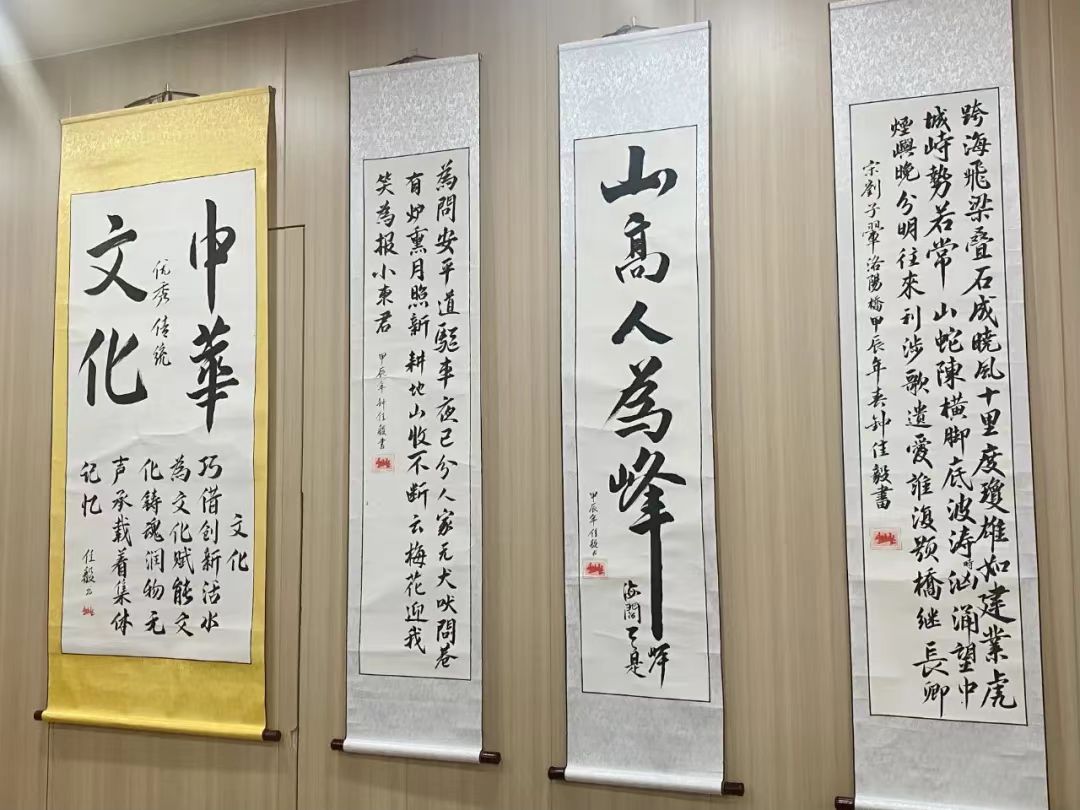 中華
优秀传统
文化
文化
巧借创新活水
為文化赋能文
化铸魂润物无
声承载着集体
记忆
佳毅书
為問安平道駈車夜已分人家无犬吠問巷
有炉熏月照新耕地山收不断云梅花迎我
笑為报小東君
甲辰年钟佳毅書
山高人為峰
甲辰年佳毅书
跨海飛梁叠石成曉风十里度瓊雄如建業虎
城峙勢若常山蛇陳横脚底波涛時汹涌望中
煙嶼晚分明往來利涉歌遺愛誰復题橋継長卿
宋劉子翬洛陽橋甲辰年春钟佳毅書